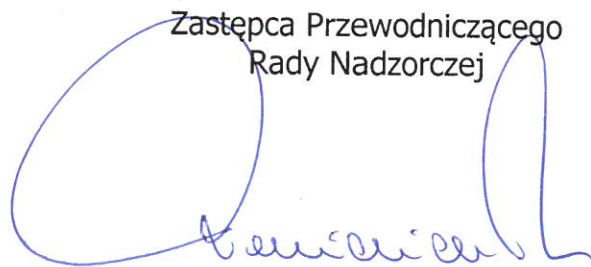 Zastępca Przewodniczącego
Rady Nadzorczej